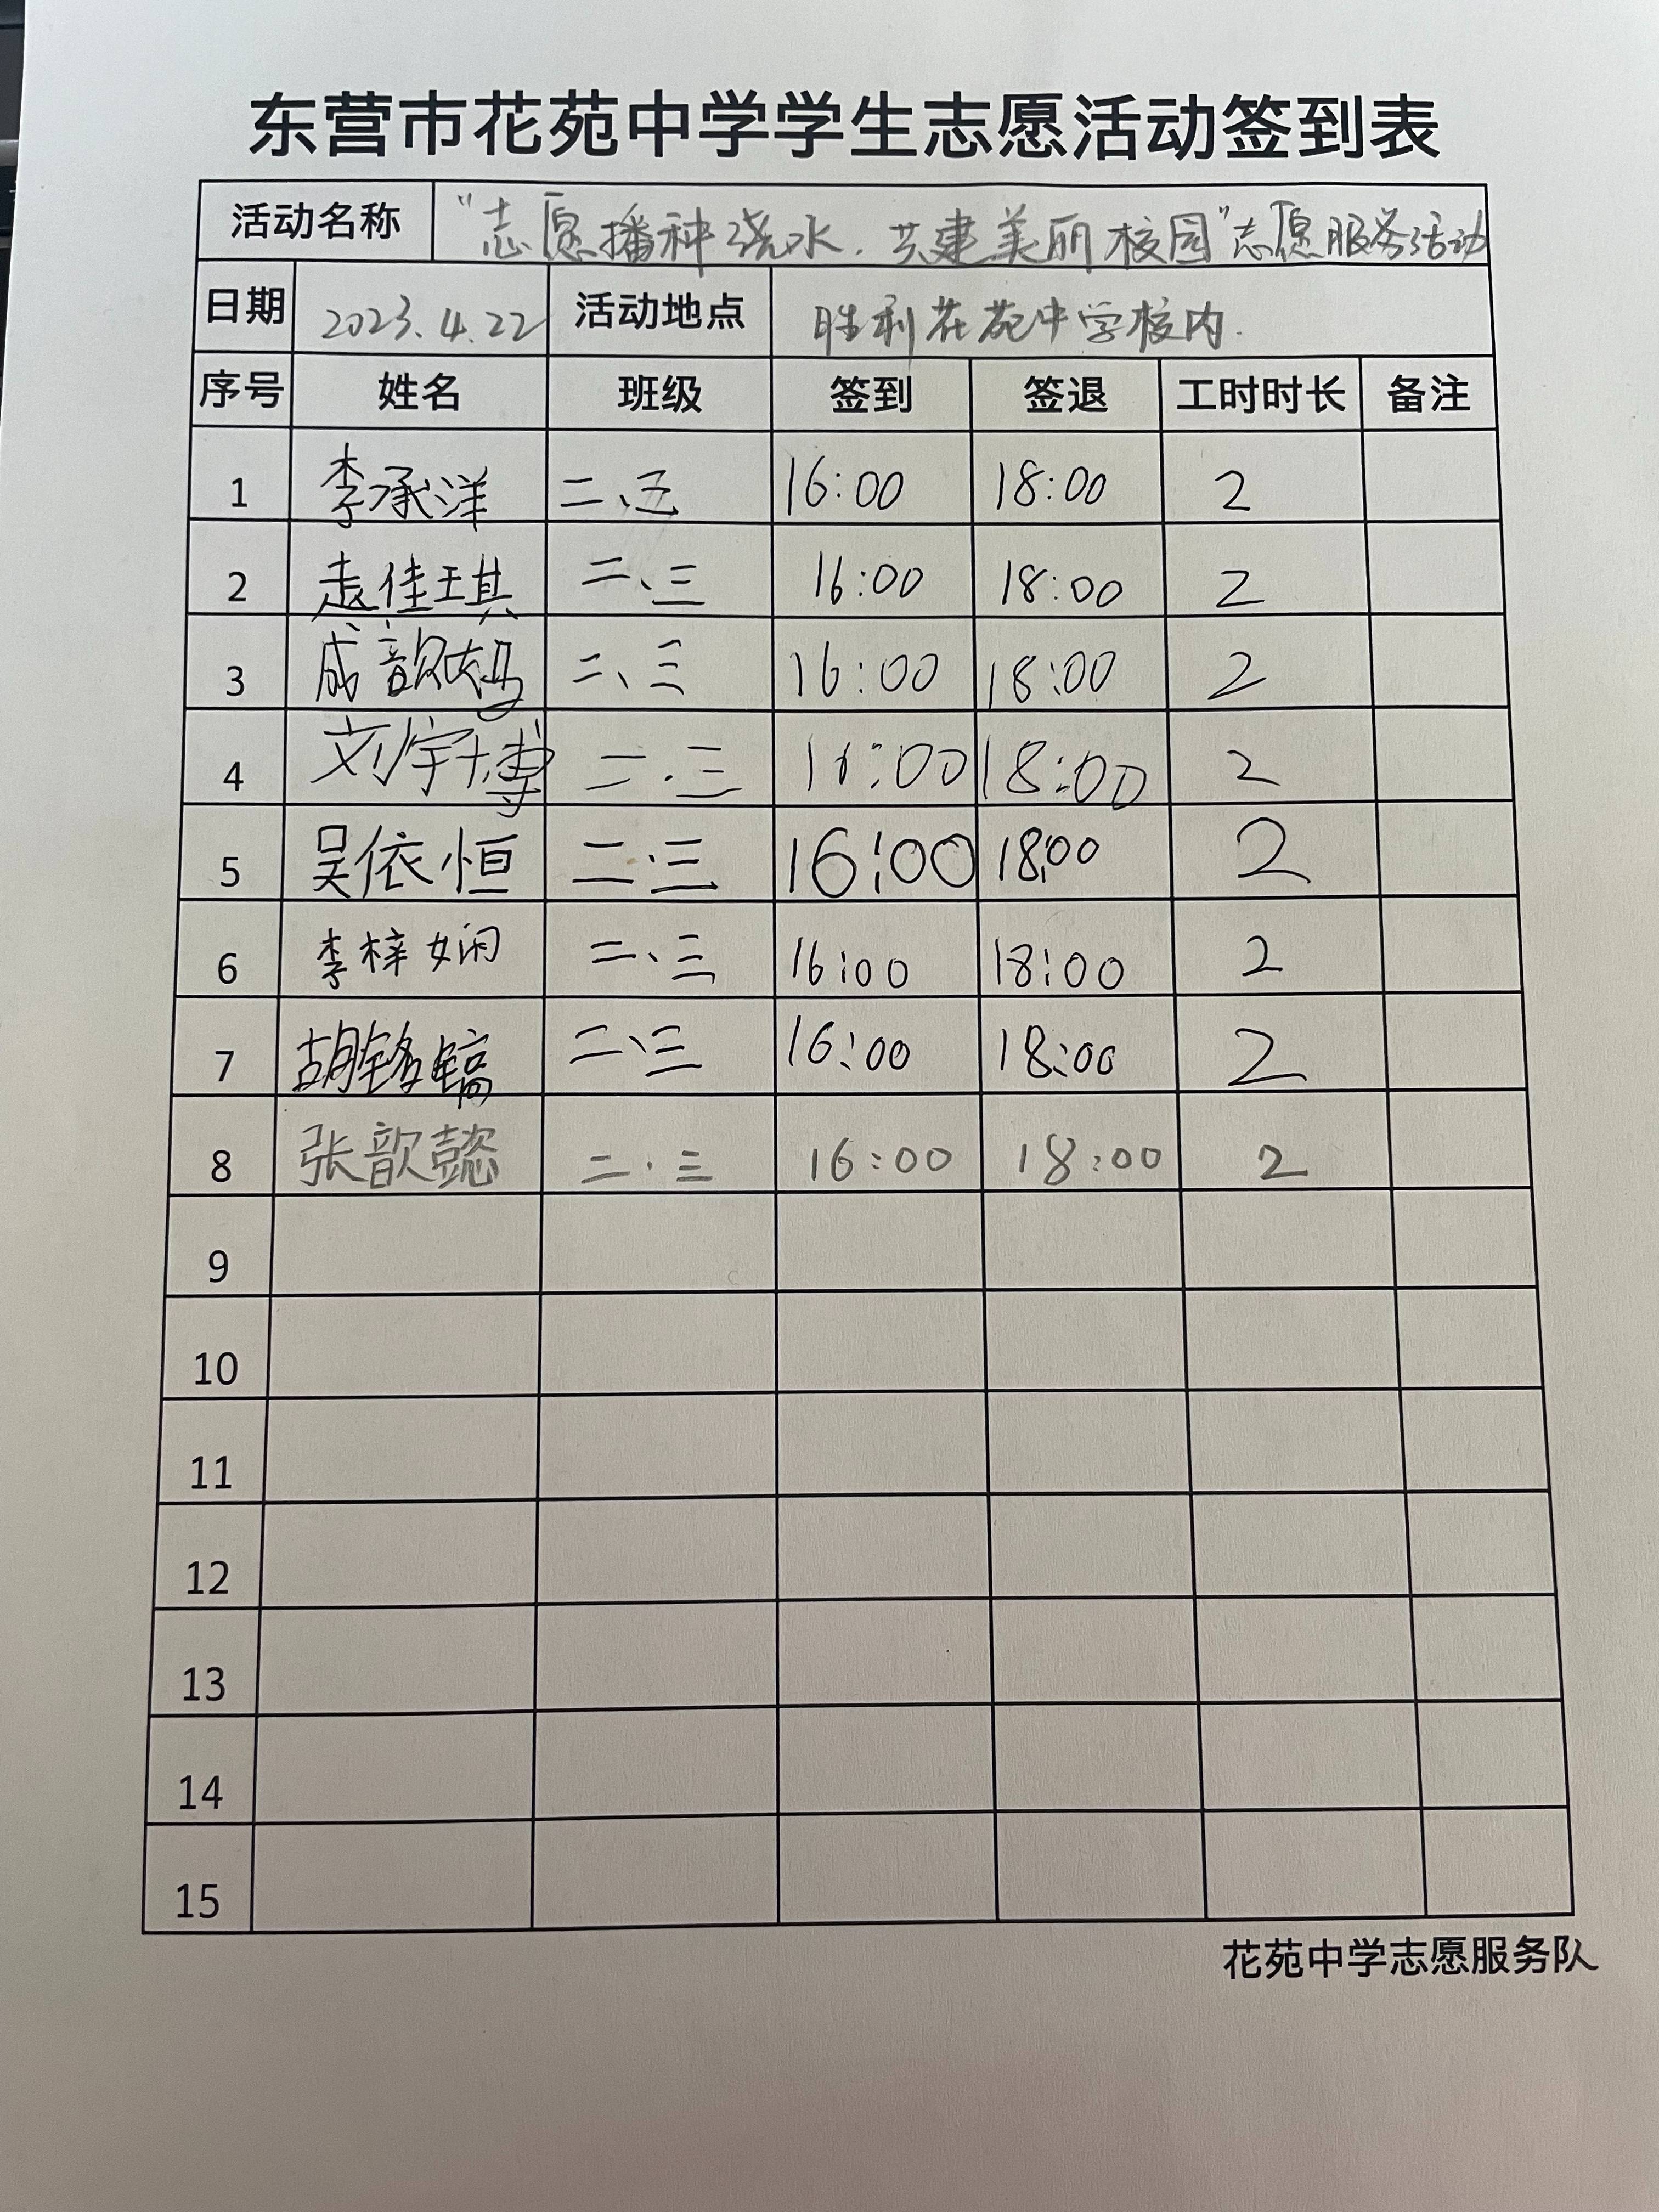 东营市花苑中学学生志愿活动签到表
活动名称 “志愿播种浇水.共建美丽校园”志愿服务活动
日期 2023.4.22 活动地点 胜利花苑中学校内.
序号 姓名 班级 签到 签退 工时时长 备注
1 李承洋 二、 16:00 18:00 2
2 赵佳琪 二、三 16:00 18:00 2
3 成歆 二、三 16:00 18:00 2
4 刘宇博 二.三 16:00 18:00 2
5 吴依恒 二.三 16:00 18:00 2
6 李梓娴 二、三 16:00 18:00 2
7 胡 镐 二、三 16:00 18:00 2
8 张歆懿 二.三 16:00 18:00 2
9
10
11
12
13
14
15
花苑中学志愿服务队